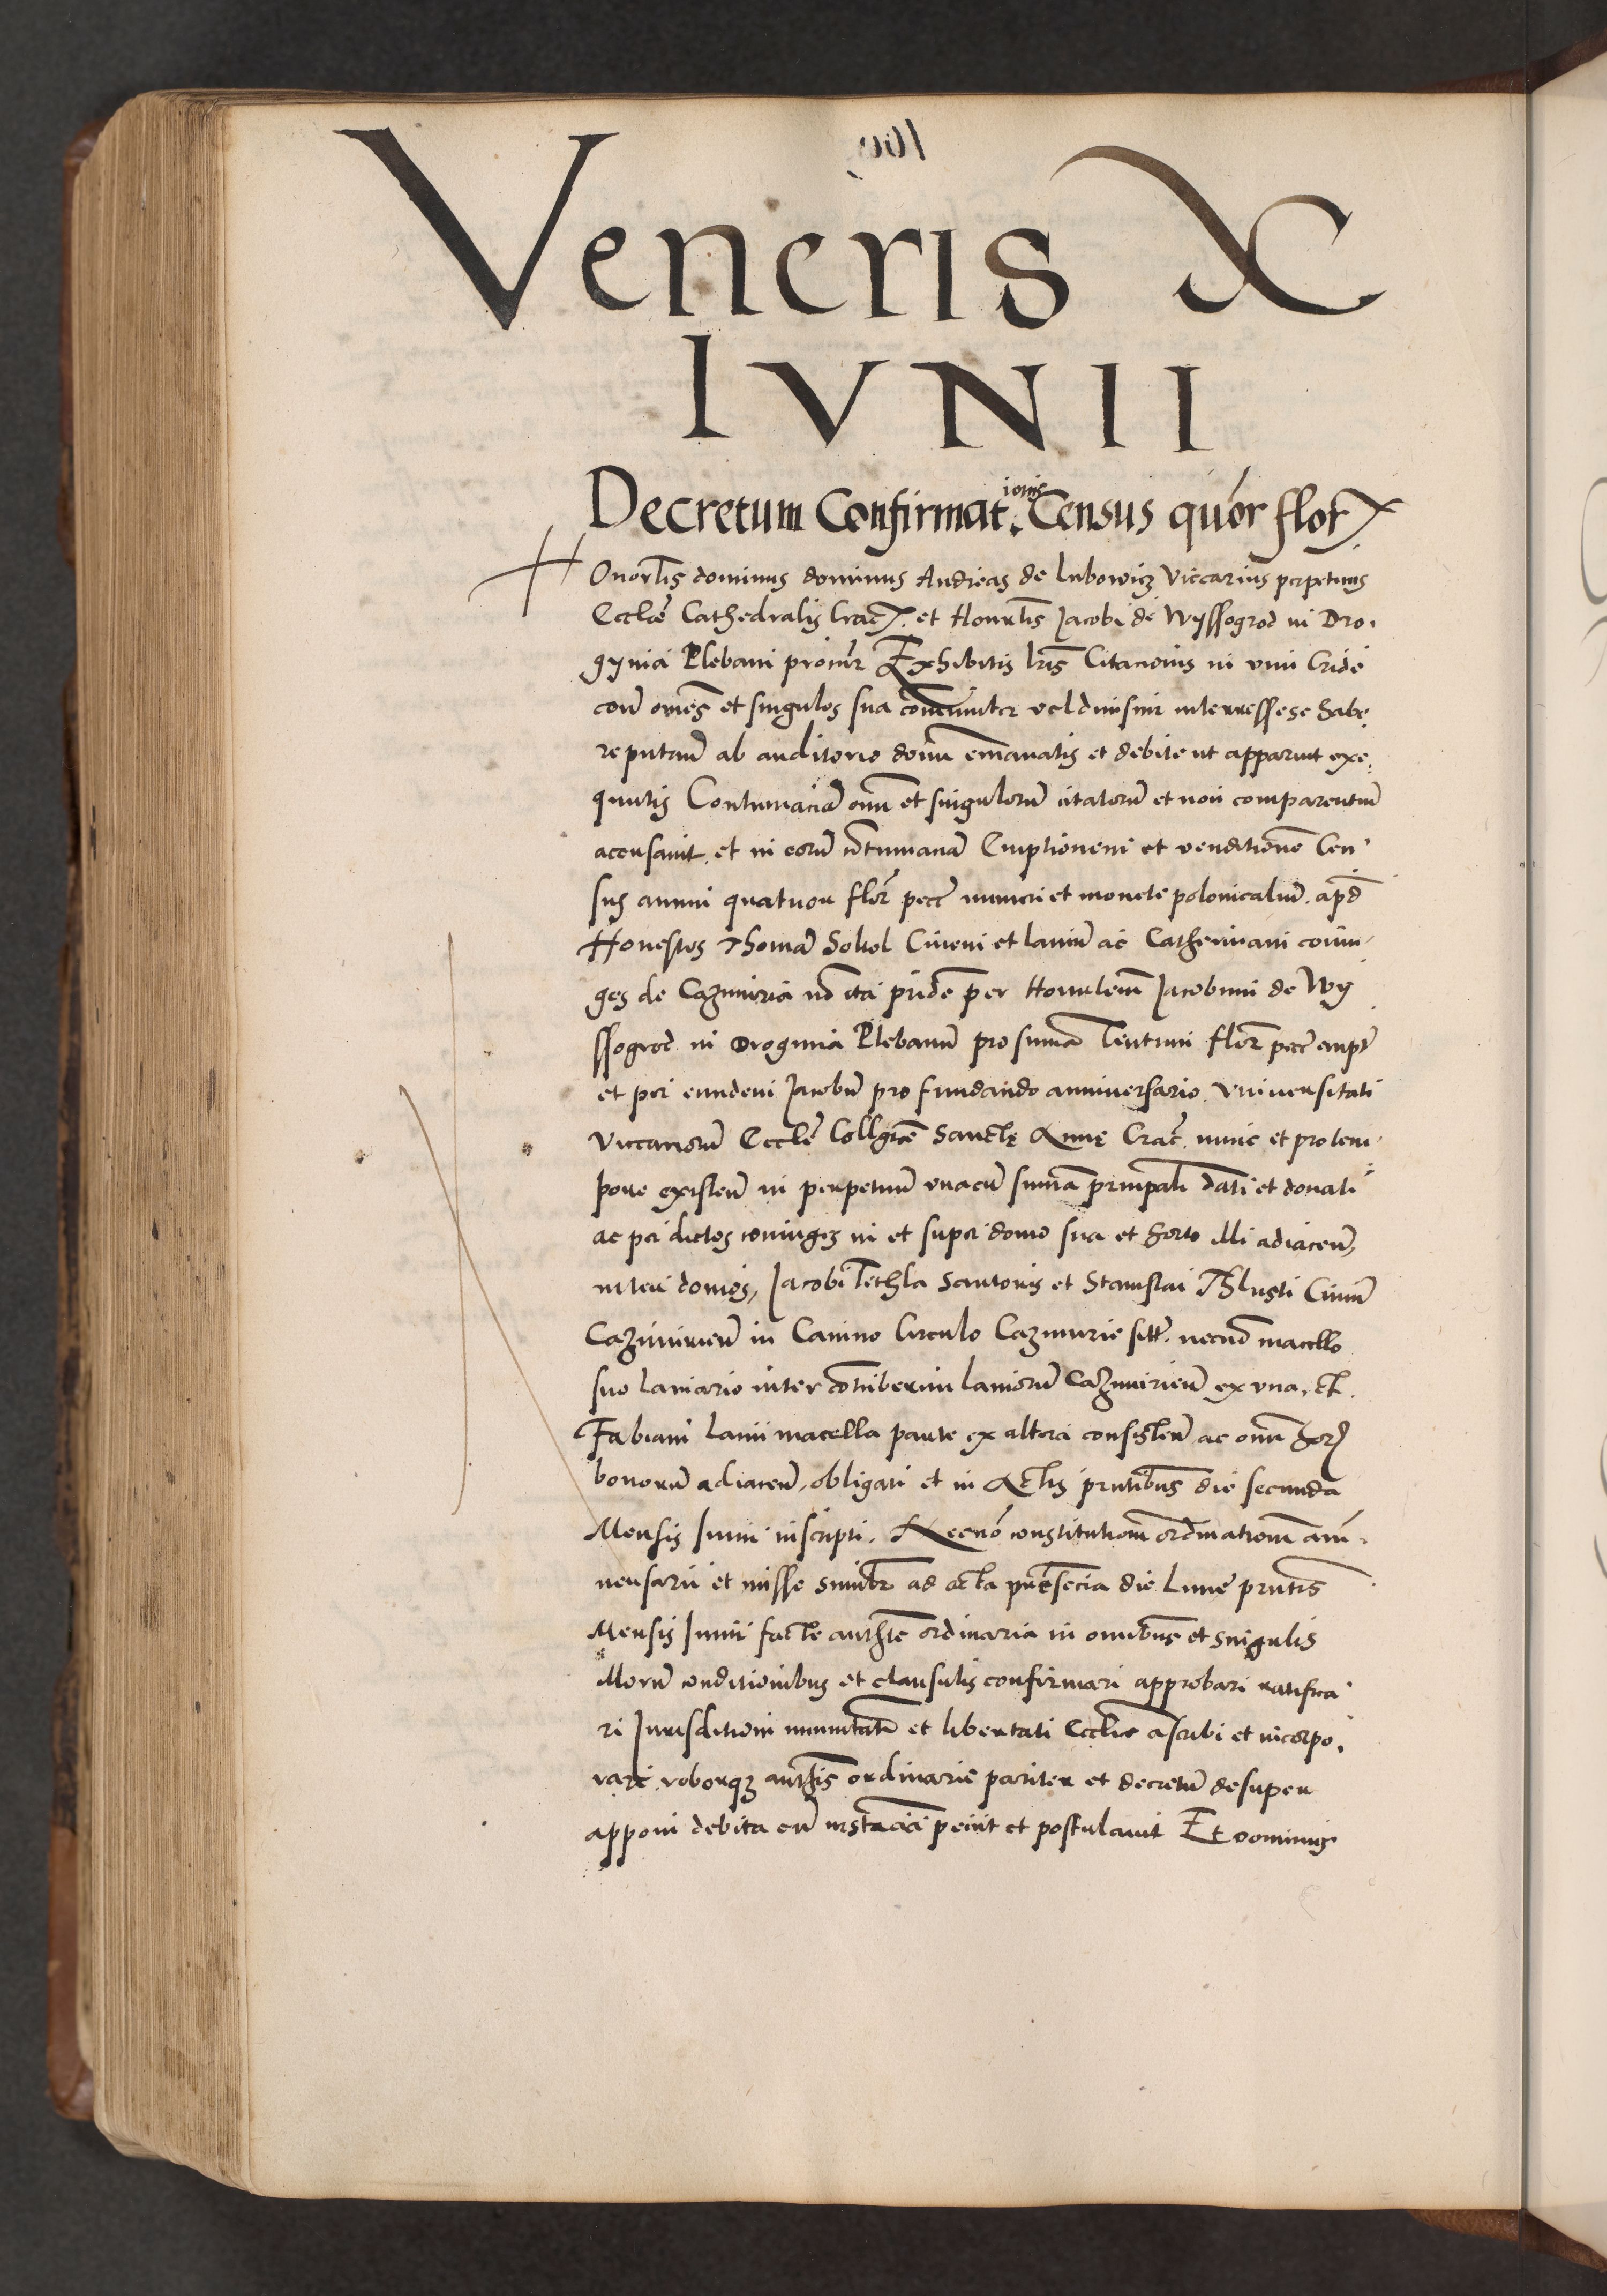 Veneris X
IVNII
Decretum Confirmat.ionis Census quor flor
Honorlis dominus dominus Andreas de Lubowicz Viccarius perpetuus
Eccle Cathedralis Crac. et Honorlis Jacobi de Wyssogrod in Dro,
gynia Plebani procur Exhibitis lris Citacionis in vim Cride
con omes et singulos sua comuniter vel divisim interressese habe
re putan ab auditorio domi emanatis et debite ut apparuit exe,
quutis Contumacia om et singulorum citatorum et non comparentium
accusavit et in eorum contumacia Emptionem et venditione Cen
sus annui quatuor flor pecc numeri et monete polonicalium apd
Honestos Thoma Sokol Civem et laniu ac Catherinam coniu
ges de Cazimiria no ita pride per Honorlem Jacobum de Wy
ssogrod in Droginia Plebanum pro suma Centum flor pecc empt
et per eundem Jacobu pro fundando anniversario Vniversitati
viccariorum Eccle Collgiate Sancte Anne Crac nunc et pro tem
pore existen in perpetuum vnacum suma principali dati et donati
ac per dictos coniuges in et super domo sua et horto illi adiacen,
inter domos, Jacobi Tethla Sartoris et Stanislai Thlusti Civium
Cazimirien in Canino Circulo Cazimirie sitt. necno macello
suo laniario inter contubernii laniorum Cazimirien ex una, et
Fabiani lanii macella parte ex altera consisten ac om hor
bonorum adiacen, obligati et in Actis pntibus die secunda
Mensis Junii inscripti. Necno constitutionem ordinationem anni
versarii et misse similr ad acta die Lune pntis
Mensis Junii facte authte ordinaria in omibus et singulis
illorum conditionibus et clausulis confirmari approbari ratifica
ri Jurisditioni immunitati et libertati Ecclie ascribi et incorpo,
rari roborqz authtis ordinarie pariter et decretum desuper
apponi debita cum instacia peciit et postulavit Et dominus